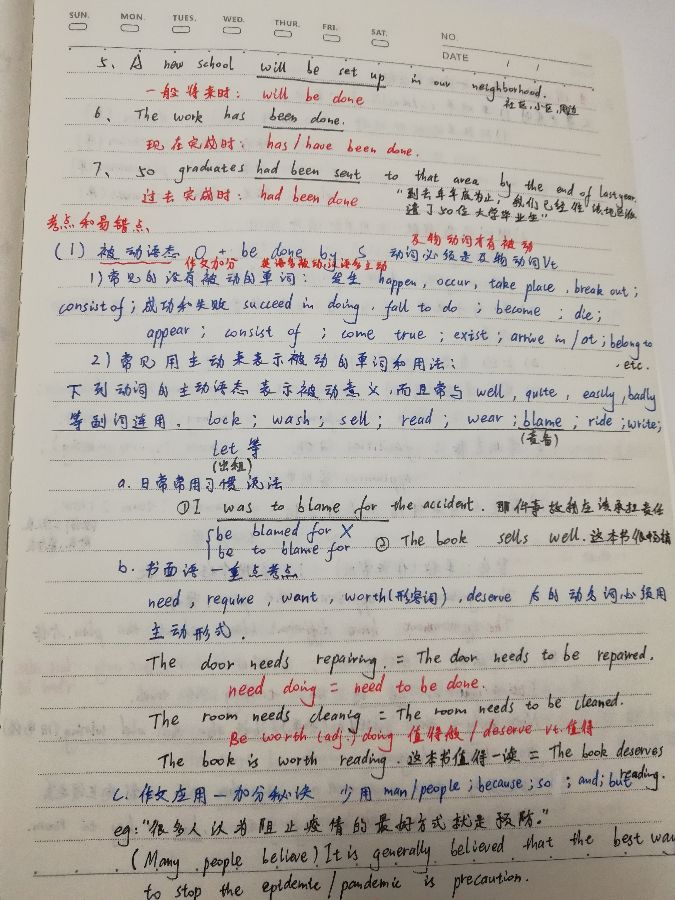 SUN. MON. TUES. WED. THUR. FRI. SAT.
NO.
DATE / /
5、A new school will be set up in our neighborhood.
社区,小区,周边
一般将来时: will be done
6、The work has been done.
现在完成时: has/have been done.
7、50 graduates had been sent to that area by the end of last year.
过去完成时: had been done
"到去年年底为止,我们已经往该地区派
遣了50位大学毕业生"
考点和易错点
及物动词才有被动
(1) 被动语态 O + be done by S 动词必须是及物动词Vt
作文加分 英语多被动,汉语多主动
1)常见的没有被动的单词: 发生 happen, occur, take place, break out;
consist of; 成功和失败 succeed in doing, fail to do ; become ; die;
appear ; consist of ; come true ; exist ; arrive in/at; belong to
etc.
2)常见用主动来表示被动的单词和用法:
下列动词的主动语态表示被动意义,而且常与 well, quite, easily, badly
等副词连用. lock ; wash ; sell ; read ; wear ; blame ; ride ; write;
(责备)
let 等
(出租)
a. 日常常用习惯说法
①I was to blame for the accident. 那件事故我应该承担责任
be blamed for X
be to blame for ② The book sells well. 这本书很畅销
b. 书面语一重点考点
need, require, want, worth(形容词), deserve 后的动名词必须用
主动形式.
The door needs repairing. = The door needs to be repaired.
need doing = need to be done.
The room needs cleanig = The room needs to be cleaned.
Be worth (adj.) doing 值得做 / deserve vt. 值得
The book is worth reading. 这本书值得一读 = The book deserves
reading.
c. 作文应用一加分秘诀 少用 man/people ; because ; so ; and; but
eg: "很多人认为阻止疫情的最好方式就是预防."
(Many people believe) It is generally believed that the best way
to stop the epidemic/pandemic is precaution.